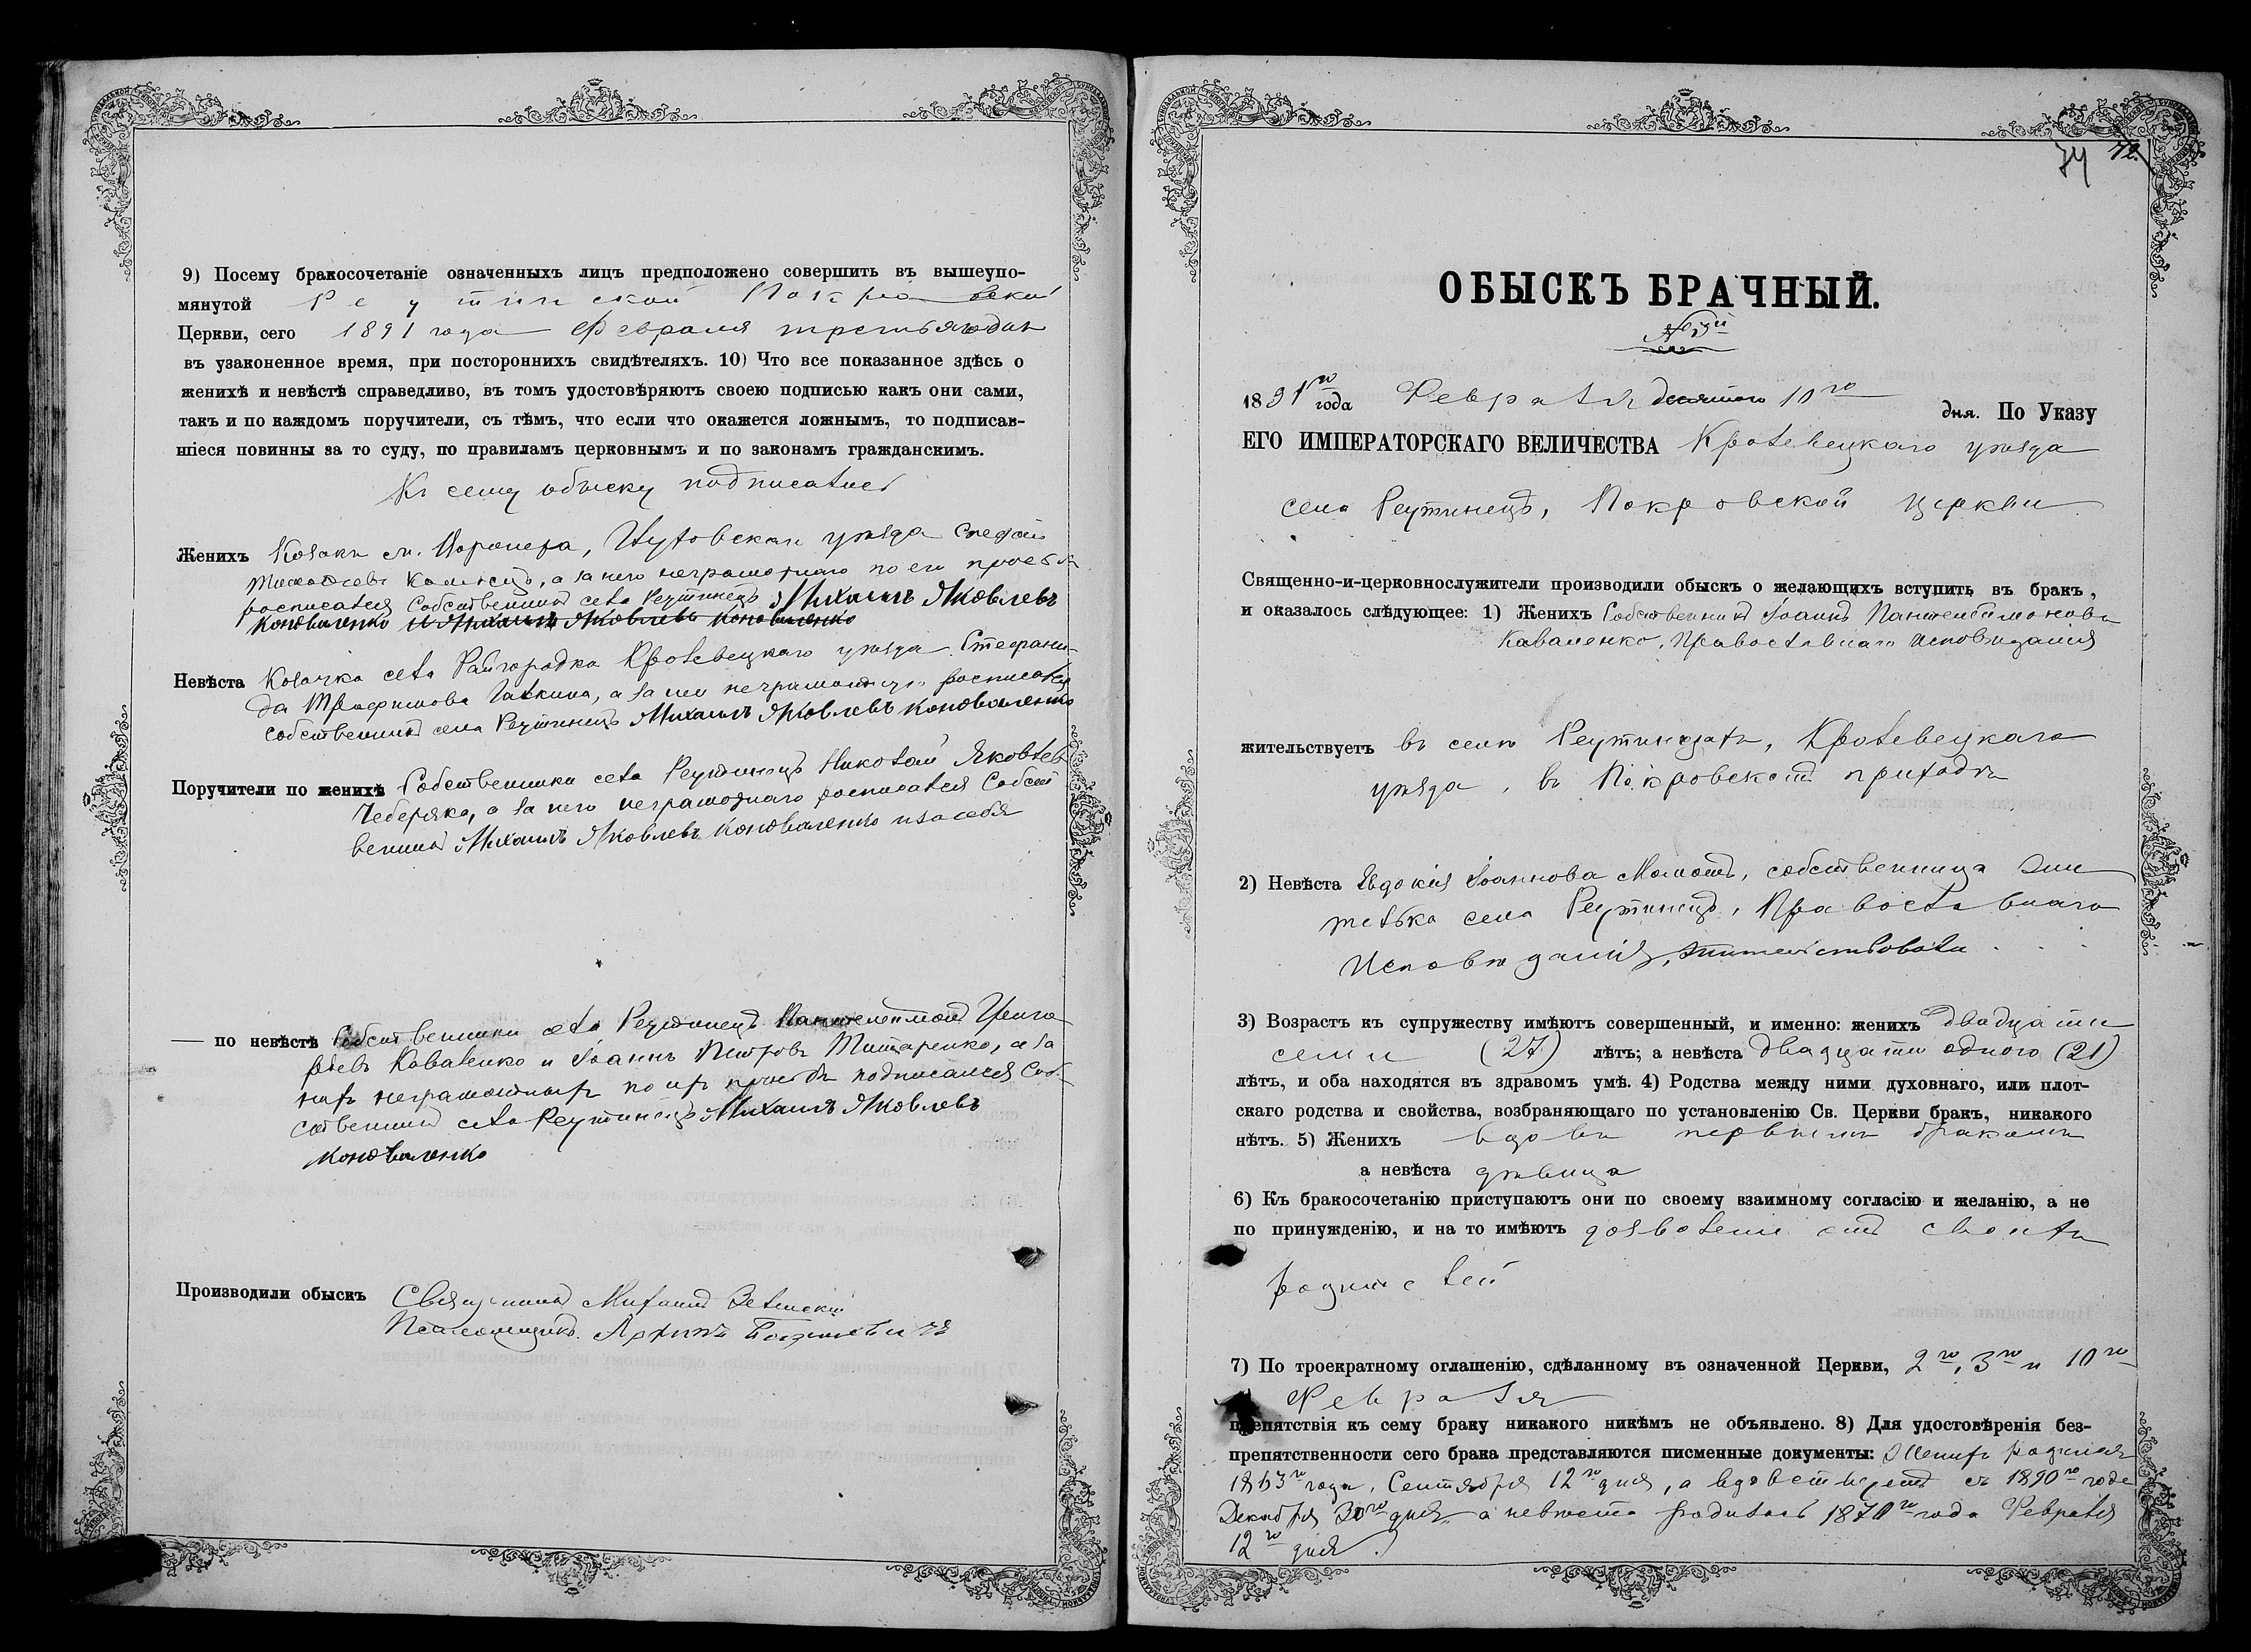 9) Посему бракосочетаніе означенныхъ лицъ предположено совершить въ вышеупо-
мянутой Реутинской Покровской
Церкви, сего 1891 года Февраля третьяго дня
въ узаконенное время, при постороннихъ свидѣтеляхъ. 10) Что все показанное здѣсь о
женихѣ и невѣстѣ справедливо, въ томъ удостовѣряютъ своею подписью какъ они сами,
такъ и по каждомъ поручители, съ тѣмъ, что если что окажется ложнымъ, то подписав-
шіеся повинны за то суду, по правиламъ церковнымъ и по законамъ гражданскимъ.
Къ сему обыску подписались
Женихъ Козакъ м. Воронежа, Глуховскаго уѣзда
а за него неграмотнаго по его просьбѣ
росписался Собственникъ села Реутинецъ Михаилъ Яковлевъ
Коноваленко и Михаилъ Яковлевъ Коноваленко
Невѣста Козачка села Райгородка Кролевецкаго уѣзда Стефани-
да Трофимова Галкина, а за нее неграмотную росписался
собственникъ села Реутинецъ Михаилъ Яковлевъ Коноваленко
Поручители по женихѣ Собственники села Реутинецъ Николай Яковлев
Чеберяко, а за него неграмотнаго росписался Собст
венникъ Михаилъ Яковлевъ Коноваленко и за себя
— по невѣстѣ Собственники села Реутинецъ Пантелеимонъ Григо
рьевъ Коваленко и Іоаннъ Петровъ Титаренко, а за
нихъ неграмотныхъ по ихъ просьбѣ подписался Соб-
ственникъ села Реутинецъ Михаилъ Яковлевъ
Коноваленко
Производили обыскъ Священникъ Михаилъ
Псаломщикъ Архипъ
74 72.
ОБЫСКЪ БРАЧНЫЙ.
1891го года Февраля десятого 10го дня. По Указу
ЕГО ИМПЕРАТОРСКАГО ВЕЛИЧЕСТВА Кролевецкаго уѣзда
села Реутинецъ, Покровской церкви
Священно-и-церковнослужители производили обыскъ о желающихъ вступить въ бракъ,
и оказалось слѣдующее: 1) Женихъ Собственникъ Іоаннъ Пантелеимоновъ
Каваленко, Православнаго исповѣданія
жительствуетъ въ селѣ Реутинцахъ, Кролевецкаго
уѣзда, въ Покровскомъ приходѣ
2) Невѣста Евдокія Іоаннова Момотъ, собственница жи
телька села Реутинецъ, Православнаго
Исповѣданія, жительствовала
3) Возрастъ къ супружеству имѣютъ совершенный, и именно: женихъ двадцати
семи (27) лѣтъ; а невѣста двадцати одного (21)
лѣтъ, и оба находятся въ здравомъ умѣ. 4) Родства между ними духовнаго, или плот-
скаго родства и свойства, возбраняющаго по установленію Св. Церкви бракъ, никакого
нѣтъ. 5) Женихъ вдовъ первымъ бракомъ
а невѣста дѣвица
6) Къ бракосочетанію приступаютъ они по своему взаимному согласію и желанію, а не
по принужденію, и на то имѣютъ дозволеніе отъ своихъ
родителей
7) По троекратному оглашенію, сдѣланному въ означенной Церкви, 2го, 3го и 10го
Февраля
препятствія къ сему браку никакого никѣмъ не объявлено. 8) Для удостовѣренія без-
препятственности сего брака представляются писменные документы: Женихъ родился
1863го года, Сентября 12го дня, а съ 1890го года
Декабря 30го дня, а невѣста родилась 1870го года Февраля
12го дня.